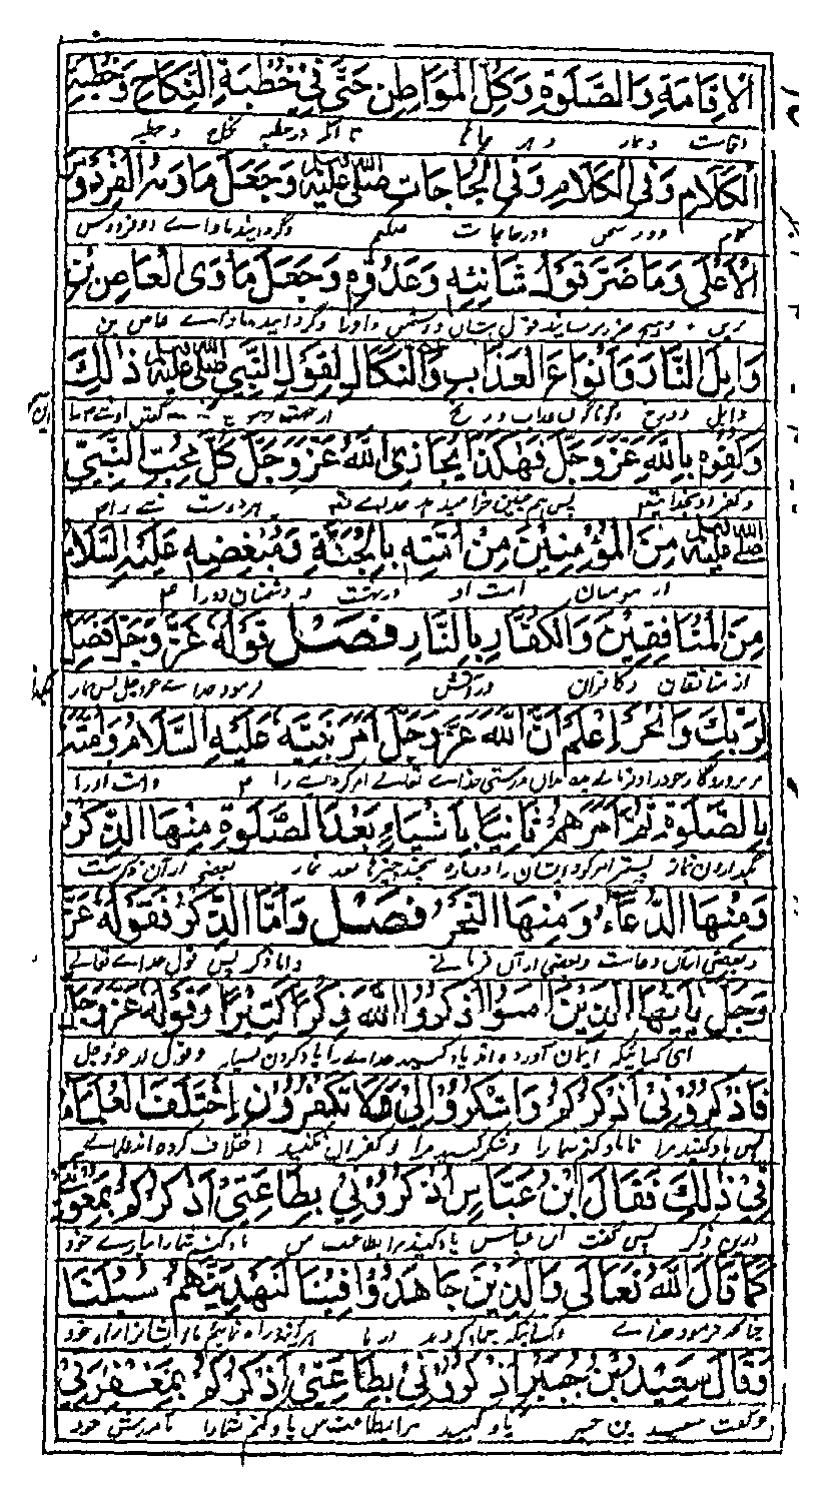 اَلْاِقَامَةِ وَالصَّلٰوةِ وَكُلِّ الْمَوَاطِنِ حَتّٰى فِيْ خُطْبَةِ النِّكَاحِ وَخُطْبَةِ
اقامت و نماز و هر جائها تا آنکه در خطبه نکاح و خطبه
اَلْكَلَامِ وَفِي الْكَلَامِ وَفِي الْحَاجَاتِ صَلَّى اللّٰهُ عَلَيْهِ وَسَلَّمَ وَجَعَلَ مَاوٰىهُ الْفِرْدَوْسَ
کلام و در سخن و در حاجات وگردانید ماواے او فردوس
الْاَعْلٰى وَمَا ضَرَّ قَوْلُ شَانِئِهٖ وَعَدُوِّهٖ وَجَعَلَ مَاوَى الْعَاصِ بْنِ
قول دشمن و گردانید ماواے عاص بن
وَائِلِ النَّارَ وَاَنْوَاعَ الْعَذَابِ وَالنَّكَالِ لِقَوْلِ النَّبِيِّ صَلَّى اللّٰهُ عَلَيْهِ وَسَلَّمَ ذٰلِكَ
وایل دوزخ و گوناگون عذاب و رنج
وَكُفْرِهٖ بِاللّٰهِ عَزَّ وَجَلَّ فَهٰكَذَا يُجَازِى اللّٰهُ عَزَّ وَجَلَّ كُلَّ مُحِبِّ النَّبِيِّ
و کفر او بخدا پس همچنین هر دوست نبی را
صَلَّى اللّٰهُ عَلَيْهِ وَسَلَّمَ مِنَ الْمُؤْمِنِيْنَ مِنْ اُمَّتِهٖ بِالْجَنَّةِ وَمُبْغِضِهٖ عَلَيْهِ السَّلَامُ
از مومنان امت او و دشمنان او را
مِنَ الْمُنَافِقِيْنَ وَالْكُفَّارِ بِالنَّارِ فَصْلٌ قَوْلُهٗ عَزَّ وَجَلَّ فَصَلِّ
از منافقان و کافران در آتش فرمود خداے عزوجل پس نماز
لِرَبِّكَ وَانْحَرْ اِعْلَمْ اَنَّ اللّٰهَ عَزَّ وَجَلَّ اَمَرَ نَبِيَّهٗ عَلَيْهِ السَّلَامُ وَاُمَّتَهٗ
بدرستی خداے تعالے امر کرد نبی را و امت او را
بِالصَّلٰوةِ ثُمَّ اَمَرَهُمْ ثَانِيًا بِاَشْيَاءَ بَعْدَ الصَّلٰوةِ مِنْهَا الذِّكْرُ
نگهداردن نماز پستر امر کرد ایشان را دوباره بچند چیزها بعد نماز بعضی از آن ذکرست
وَمِنْهَا الدُّعَاءُ وَمِنْهَا النَّحْرُ فَصْلٌ وَاَمَّا الذِّكْرُ فَقَوْلُهٗ عَزَّ
و بعضی ازان دعاست و بعضی از آن قربانی و اما ذکر پس قول خداے تعالے
وَجَلَّ يٰاَيُّهَا الَّذِيْنَ اٰمَنُوا اذْكُرُوا اللّٰهَ ذِكْرًا كَثِيْرًا وَقَوْلُهٗ عَزَّ وَجَلَّ
ای کسانیکه ایمان آورده اند یاد کنید خداے را یاد کردن بسیار و قول او عزوجل
فَاذْكُرُوْنِيْ اَذْكُرْكُمْ وَاشْكُرُوْا لِيْ وَلَا تَكْفُرُوْنِ اِخْتَلَفَ الْعُلَمَاءُ
پس یاد کنید مرا تا یاد کنم شما را و شکر کنید مرا و کفران نکنید اختلاف کرده اند علماے
فِيْ ذٰلِكَ فَقَالَ ابْنُ عَبَّاسٍ اذْكُرُوْنِيْ بِطَاعَتِيْ اَذْكُرْكُمْ بِمَعُوْنَتِيْ
درین ذکر پس گفت ابن عباس یاد کنید مرا بطاعت من یاد کنم شما را بیارے خود
كَمَا قَالَ اللّٰهُ تَعَالٰى وَالَّذِيْنَ جَاهَدُوْا فِيْنَا لَنَهْدِيَنَّهُمْ سُبُلَنَا
چنانکه فرمود خداے و کسانیکه جهاد کردند در ما هر آینه راه نمایم ما ایشان را راه خود
وَقَالَ سَعِيْدُ بْنُ جُبَيْرٍ اُذْكُرُوْنِيْ بِطَاعَتِيْ اَذْكُرْكُمْ بِمَغْفِرَتِيْ
و گفت سعید بن جبیر یاد کنید مرا بطاعت من یاد کنم شما را بآمرزش خود